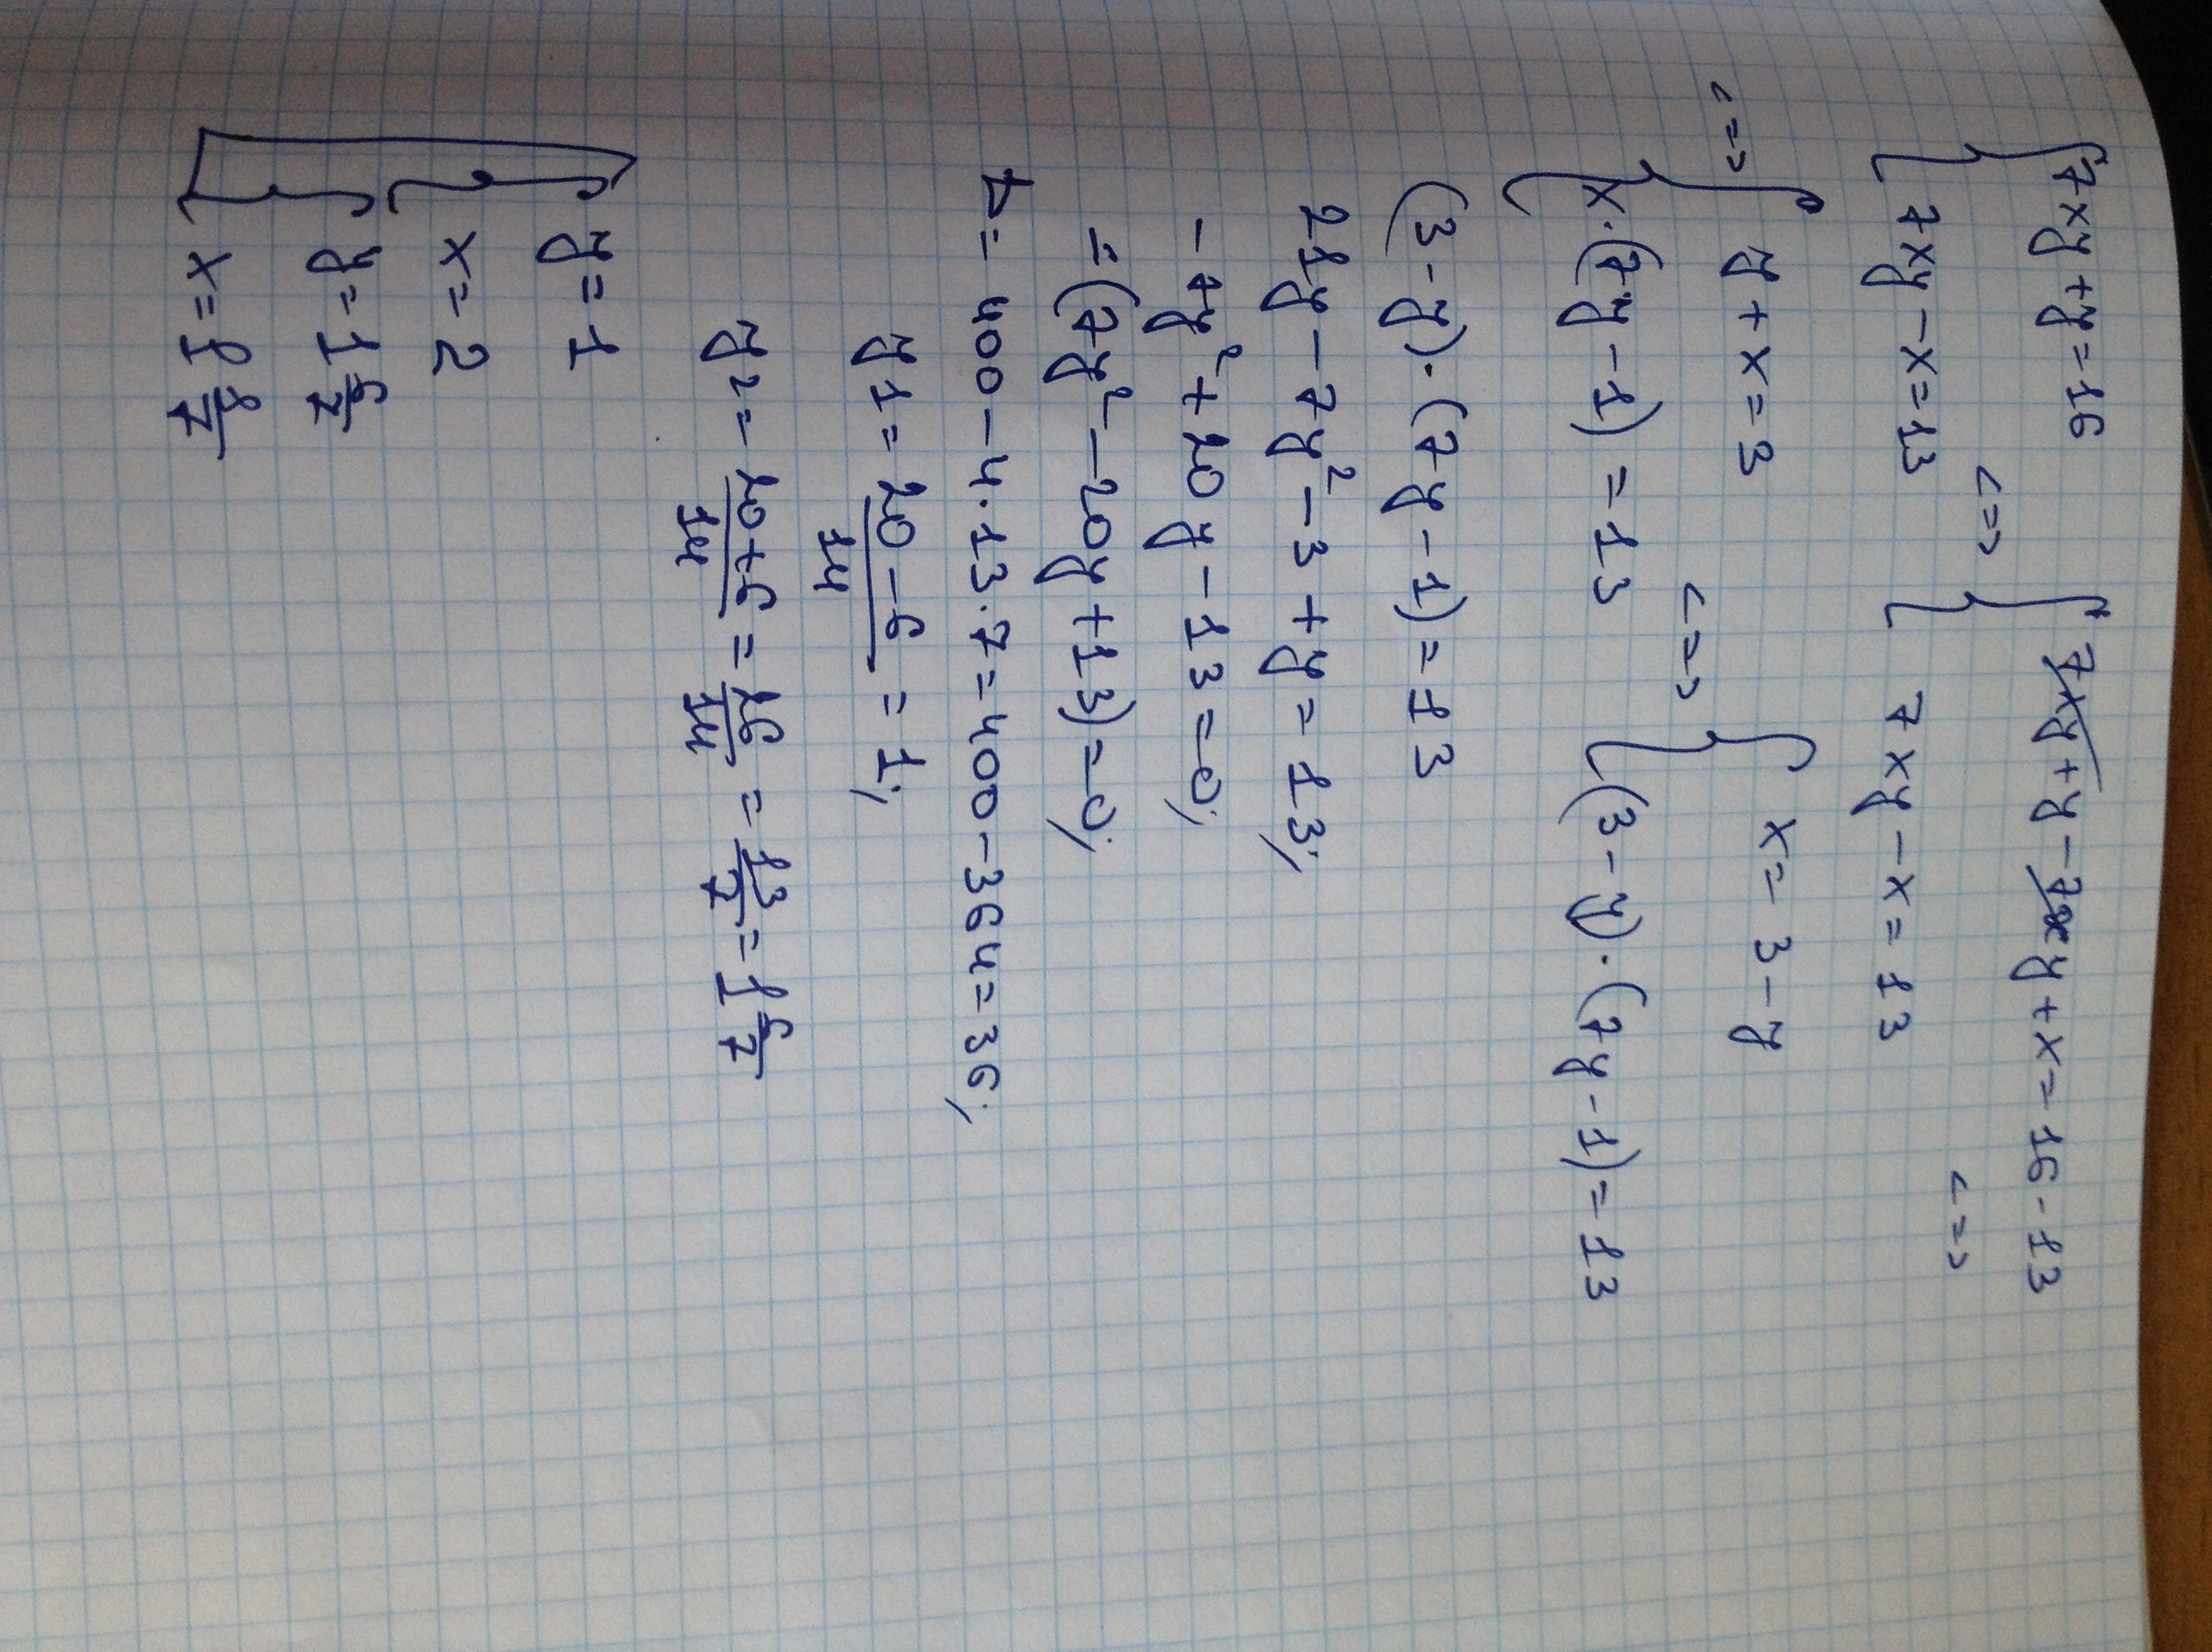 { 7xy+y=16 <=> { 7xy+y-7xy+x=16-13 <=>
{ 7xy-x=13 { 7xy-x=13
<=> { y+x=3 <=> { x=3-y
{ x·(7y-1)=13 { (3-y)·(7y-1)=13
(3-y)·(7y-1)=13
21y-7y²-3+y=13;
-7y²+20y-13=0;
=(7y²-20y+13)=0;
D=400-4·13·7=400-364=36;
y1=\frac{20-6}{14}=1;
y2=\frac{20+6}{14}=\frac{26}{14}=\frac{13}{7}=1\frac{6}{7}
[ { y=1
{ x=2
{ y=1\frac{6}{7}
{ x=1\frac{1}{7}